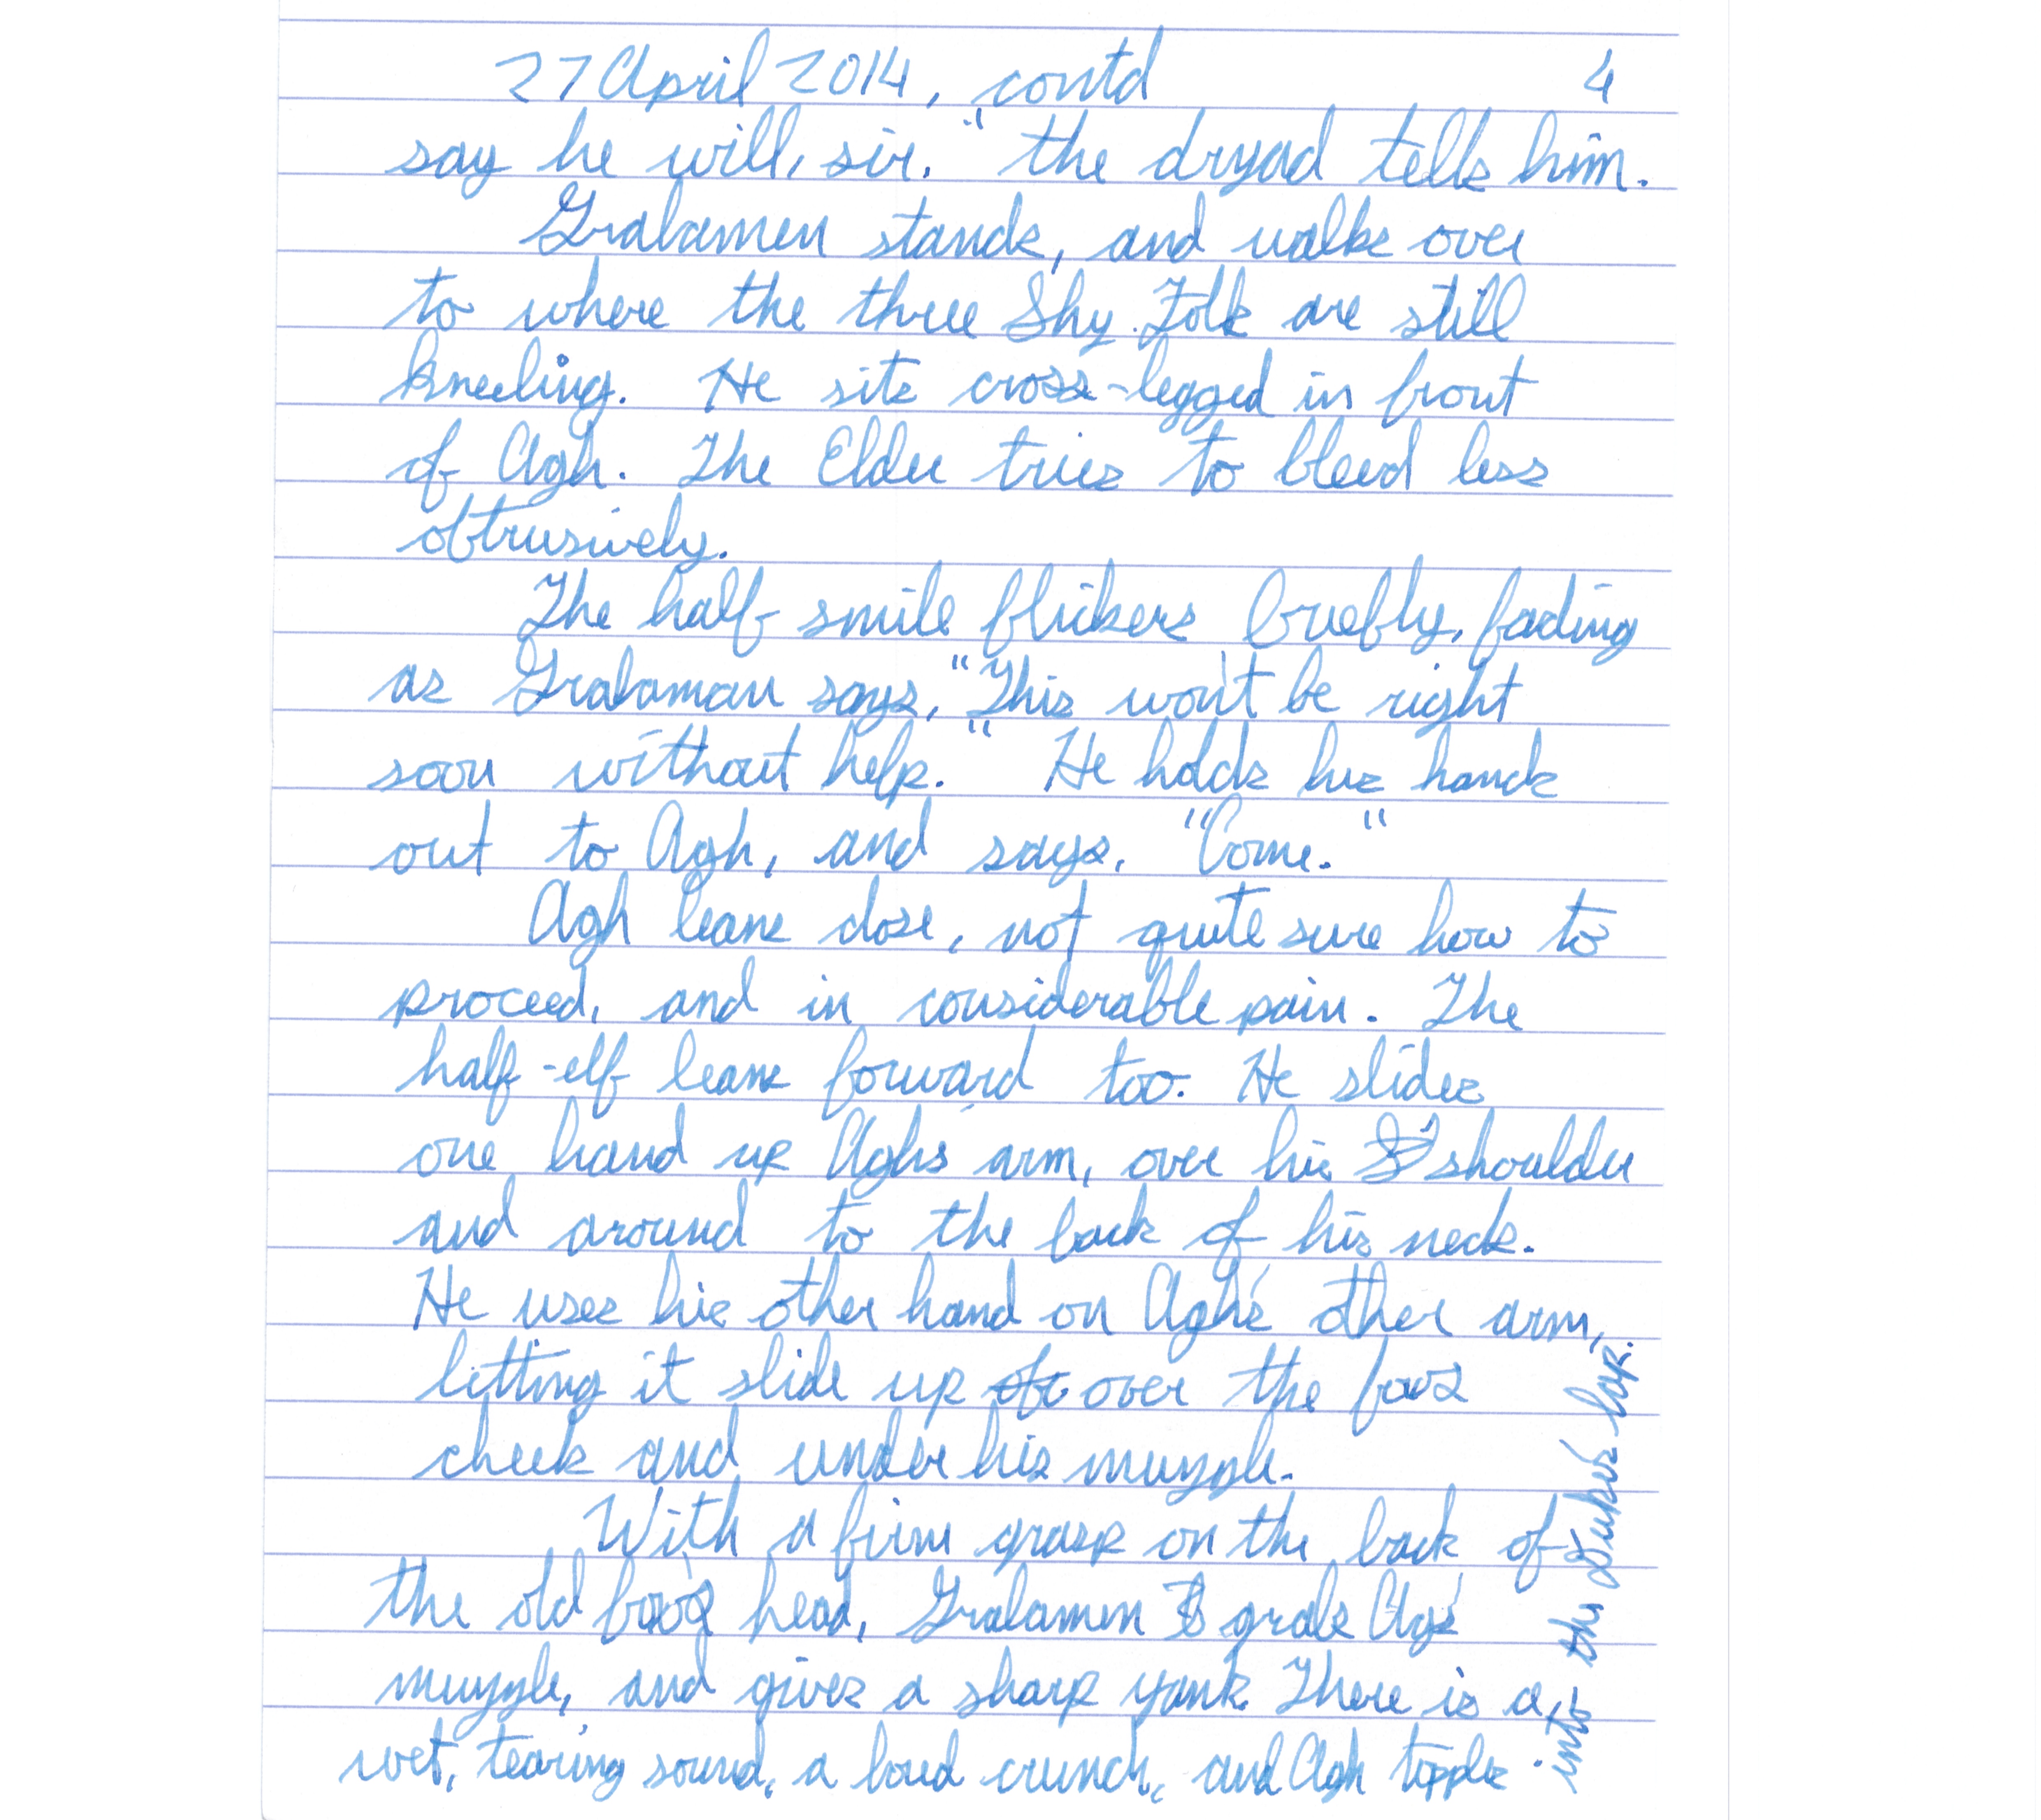 27 April 2014, contd 4
say he will, sir." the dryad tells him.
Gralamen stands, and walks over
to where the three Shy Folk are still
kneeling. He sits cross-legged in front
of Agh. The Elder tries to bleed less
obtrusively.
The half smile flickers briefly, fading
as Gralaman says, "This won't be right
soon without help." He holds his hands
out to Agh, and says, "Come."
Agh leans close, not quite sure how to
proceed, and in considerable pain. The
half-elf leans forward too. He slides
one hand up Agh's arm, over his shoulder
and around to the back of his neck.
He uses his other hand on Agh's other arm,
letting it slide up over the
cheek and under his muzzle.
With a firm grasp on the back of
the old head, Gralamen grabs Ag's
muzzle, and gives a sharp yank. There is a
wet, tearing sound, a loud crunch, and Agh topples
into the Duke's lap.